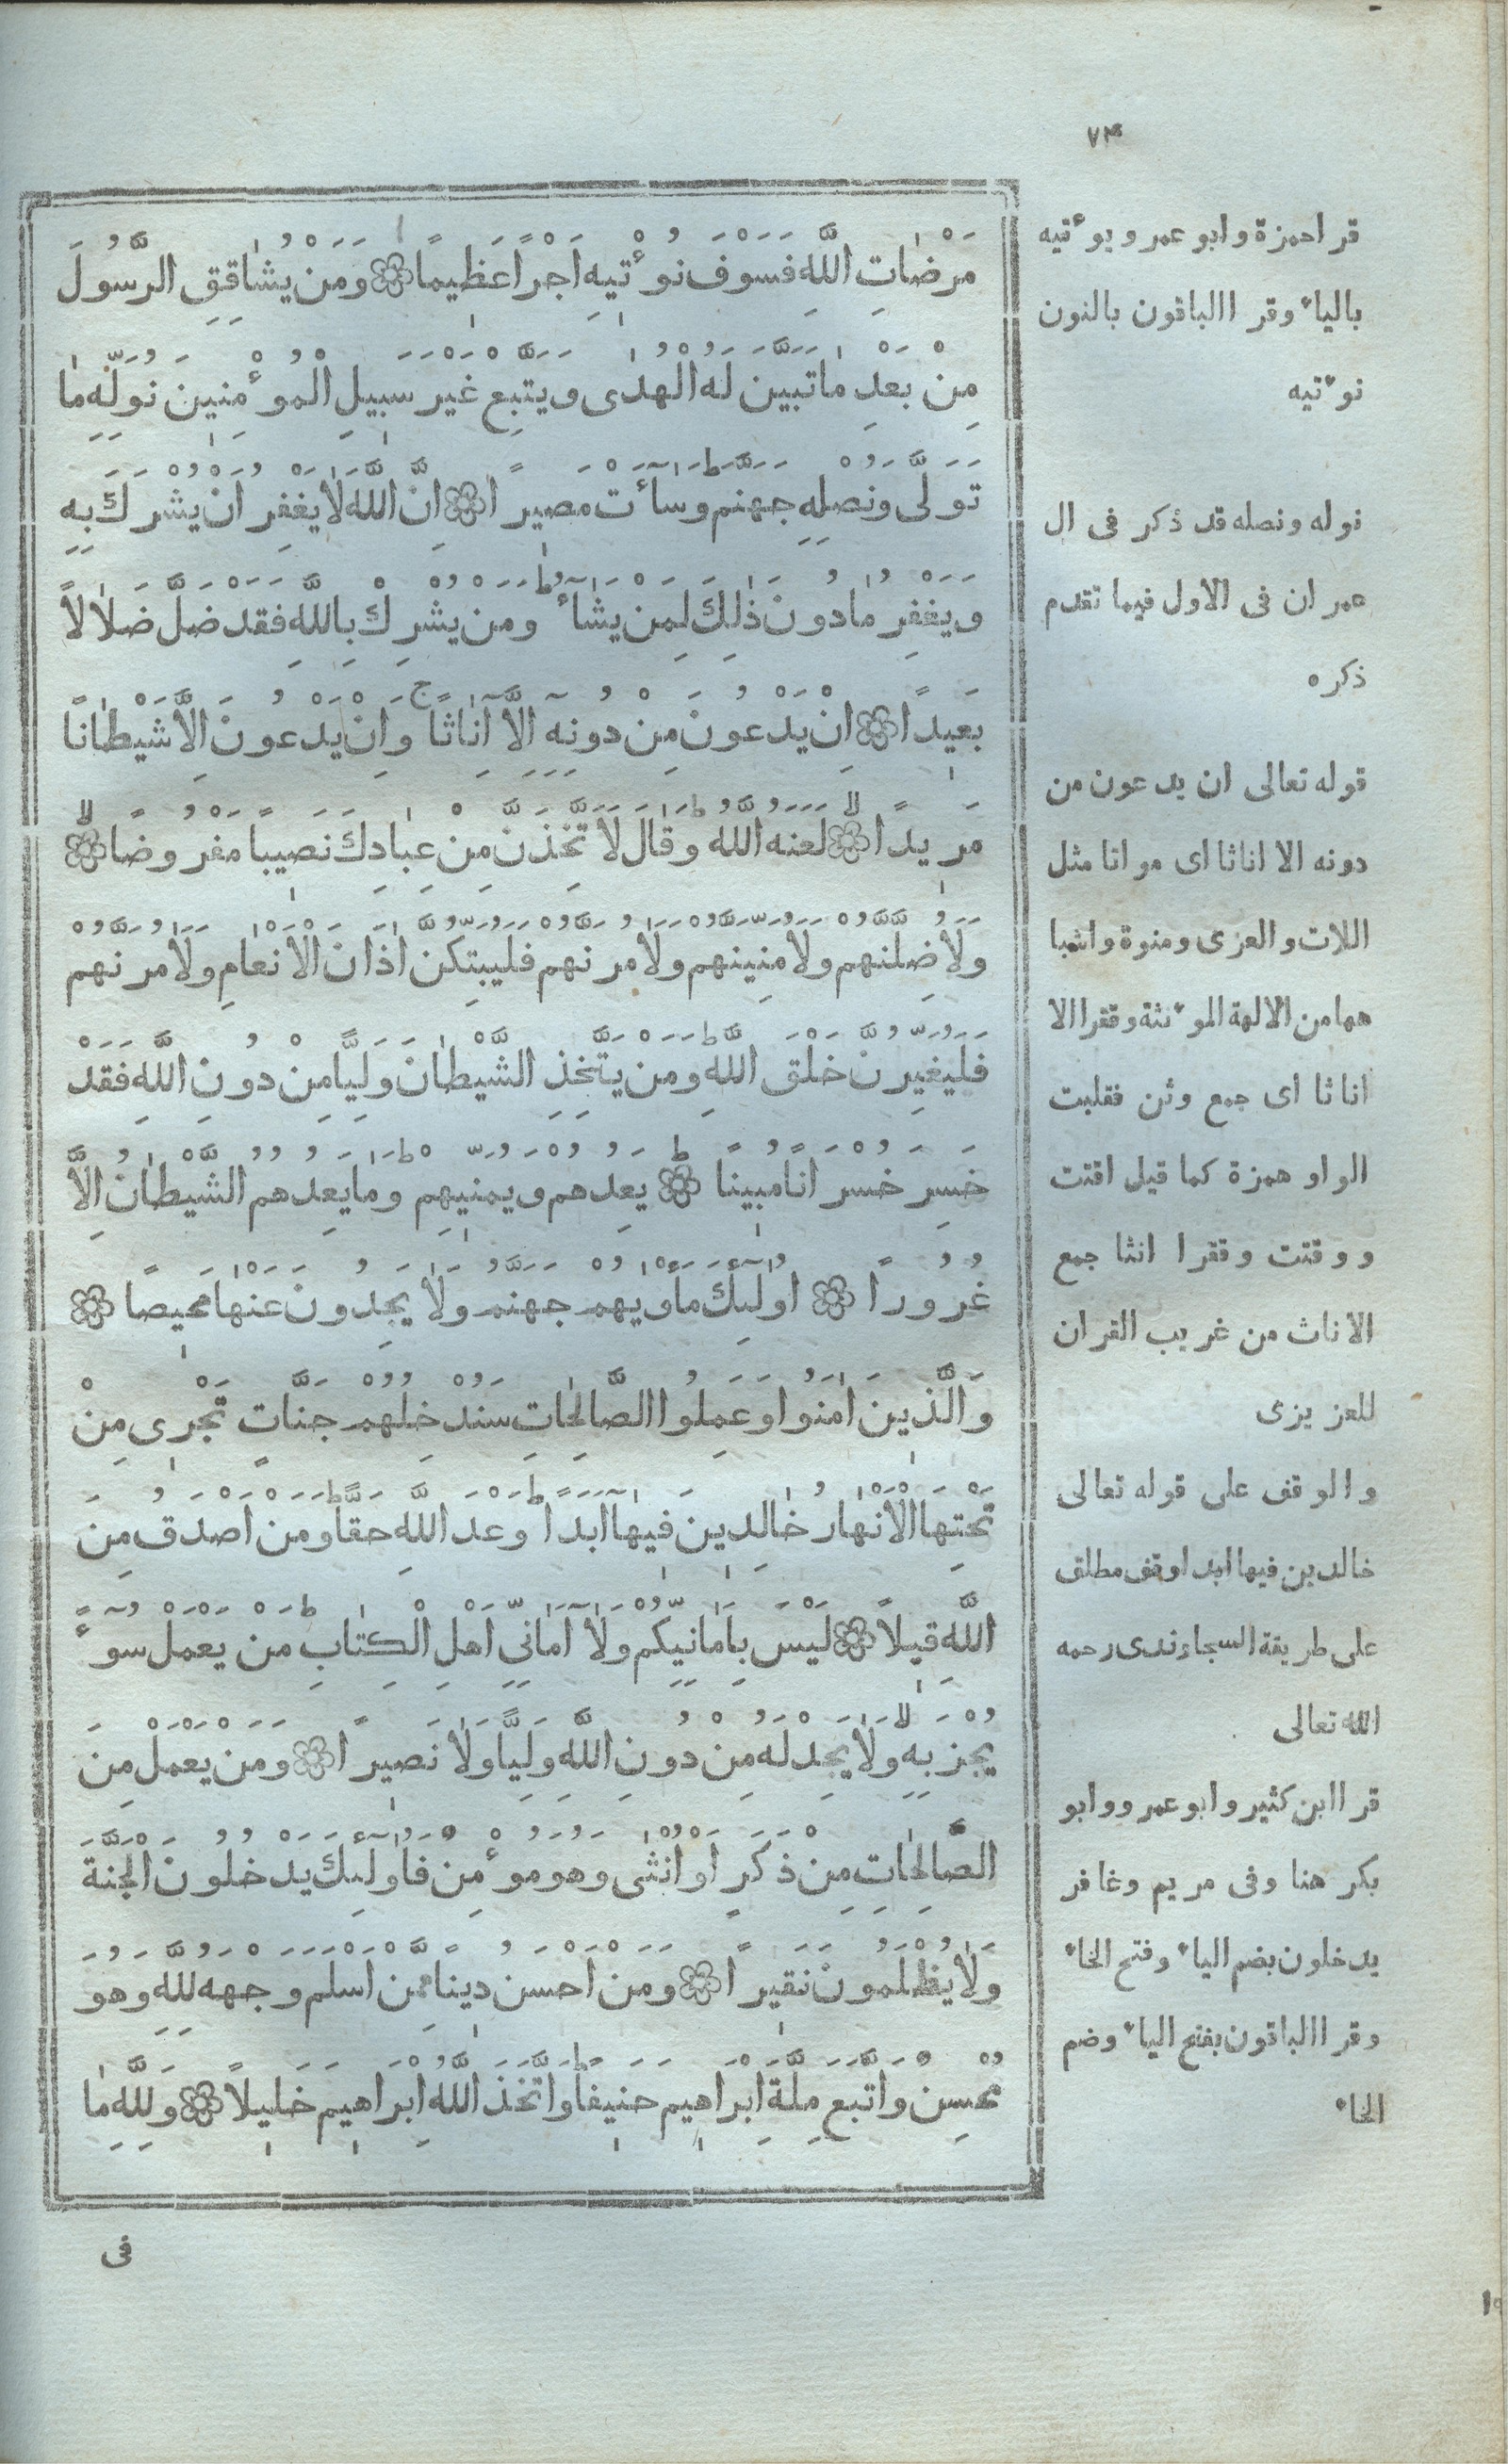 ٧٣
مَرْضَاتِ اللَّهِ فَسَوْفَ نُوءْتِيهِ اَجْرًا عَظِيمًا ۞ وَمَنْ يُشَاقِقِ الرَّسُولَ
مِنْ بَعْدِ مَا تَبَيَّنَ لَهُ الْهُدٰى وَيَتَّبِعْ غَيْرَ سَبِيلِ الْمُوءْمِنِينَ نُوَلِّهِ مَا
تَوَلّٰى وَنُصْلِهِ جَهَنَّمَ ط وَسَآءَتْ مَصِيرًا ۞ اِنَّ اللَّهَ لَا يَغْفِرُ اَنْ يُشْرَكَ بِهِ
وَيَغْفِرُ مَا دُونَ ذٰلِكَ لِمَنْ يَشَآءُ ط وَمَنْ يُشْرِكْ بِاللَّهِ فَقَدْ ضَلَّ ضَلَالاً
بَعِيدًا ۞ اِنْ يَدْعُونَ مِنْ دُونِهِ اِلَّآ اِنَاثًا ج وَاِنْ يَدْعُونَ اِلَّا شَيْطَانًا
مَرِيدًا ۞ لا لَعَنَهُ اللَّهُ ط وَقَالَ لَاَتَّخِذَنَّ مِنْ عِبَادِكَ نَصِيبًا مَفْرُوضًا ۞ لا
وَلَاُضِلَّنَّهُمْ وَلَاُمَنِّيَنَّهُمْ وَلَاٰمُرَنَّهُمْ فَلَيُبَتِّكُنَّ اٰذَانَ الْاَنْعَامِ وَلَاٰمُرَنَّهُمْ
فَلَيُغَيِّرُنَّ خَلْقَ اللَّهِ ط وَمَنْ يَتَّخِذِ الشَّيْطَانَ وَلِيًّا مِنْ دُونِ اللَّهِ فَقَدْ
خَسِرَ خُسْرَانًا مُبِينًا ۞ ط يَعِدُهُمْ وَيُمَنِّيهِمْ ط وَمَا يَعِدُهُمُ الشَّيْطَانُ اِلَّا
غُرُورًا ۞ اُولٰٓئِكَ مَاْوٰيهُمْ جَهَنَّمُ وَلَا يَجِدُونَ عَنْهَا مَحِيصًا ۞
وَالَّذِينَ اٰمَنُوا وَعَمِلُوا الصَّالِحَاتِ سَنُدْخِلُهُمْ جَنَّاتٍ تَجْرِى مِنْ
تَحْتِهَا الْاَنْهَارُ خَالِدِينَ فِيهَآ اَبَدًا ط وَعْدَ اللَّهِ حَقًّا ط وَمَنْ اَصْدَقُ مِنَ
اللَّهِ قِيلاً ۞ لَيْسَ بِاَمَانِيِّكُمْ وَلَآ اَمَانِيِّ اَهْلِ الْكِتَابِ ط مَنْ يَعْمَلْ سُوٓءًا
يُجْزَ بِهِ لا وَلَا يَجِدْ لَهُ مِنْ دُونِ اللَّهِ وَلِيًّا وَلَا نَصِيرًا ۞ وَمَنْ يَعْمَلْ مِنَ
الصَّالِحَاتِ مِنْ ذَكَرٍ اَوْ اُنْثٰى وَهُوَ مُوءْمِنٌ فَاُولٰٓئِكَ يَدْخُلُونَ الْجَنَّةَ
وَلَا يُظْلَمُونَ نَقِيرًا ۞ وَمَنْ اَحْسَنُ دِينًا مِمَّنْ اَسْلَمَ وَجْهَهُ لِلَّهِ وَهُوَ
مُحْسِنٌ وَاتَّبَعَ مِلَّةَ اِبْرَاهِيمَ حَنِيفًا ط وَاتَّخَذَ اللَّهُ اِبْرَاهِيمَ خَلِيلاً ۞ وَلِلَّهِ مَا
فى
قرا حمزة وابو عمرو يوءتيه
بالياء وقرا الباقون بالنون
نوءتيه
نوله ونصله قد ذكر فى ال
عمران فى الاول فيما تقدم
ذكره
قوله تعالى ان يدعون من
دونه الا اناثا اى مواتا مثل
اللات والعزى ومنوة واشبا
هها من الالهة الموءنثة وقرا الا
اناثا اى جمع وثن فقلبت
الواو همزة كما قيل اقتت
ووقتت وقرا انثا جمع
الاناث من غريب القران
للعزيزى
والوقف على قوله تعالى
خالدين فيها ابدا وقف مطلق
على طريقة السجاوندى رحمه
الله تعالى
قرا ابن كثير وابو عمرو وابو
بكر هنا وفى مريم وغافر
يدخلون بضم الياء وفتح الخاء
وقرا الباقون بفتح الياء وضم
الخاء